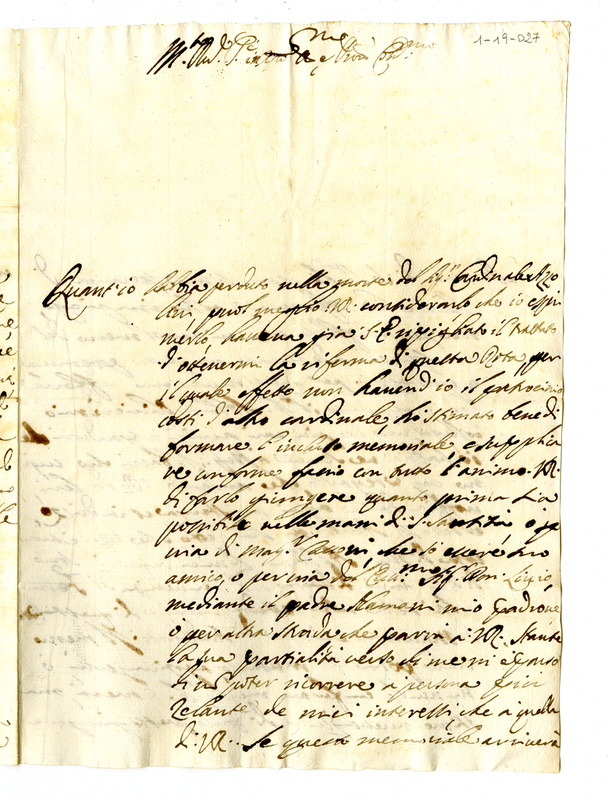 1-19-027
M.to Rev.do P.
Quant'io habbia perduto nella morte del Sig.r Cardinale Azzo
lini puol meglio VR. considerarlo che io espri
merlo, haveva gia S.E. ripigliato il trattato
d'ottenermi la riforma di questa Rota, per
il quale effetto non havend'io il patrocinio
costi d'altro cardinale, hò stimato bene di
formare l'incluso memoriale, e supplica
re conforme facio con tutto l'animo VR.
di farlo giungere quanto prima sia
possibile nelle mani di S. Santità ò p
via di Mag.r che sò essere suo
amico, o per via del Ecc.mo Sig.r Don Livio,
mediante il padre mio Padrone,
ò per altra strada che parirà à VR. stante
la sua partialità verso di me
di non poter ricorrere a persona piu
zelante de miei interessi, che a quella
di VR. Se questo memoriale arriverà